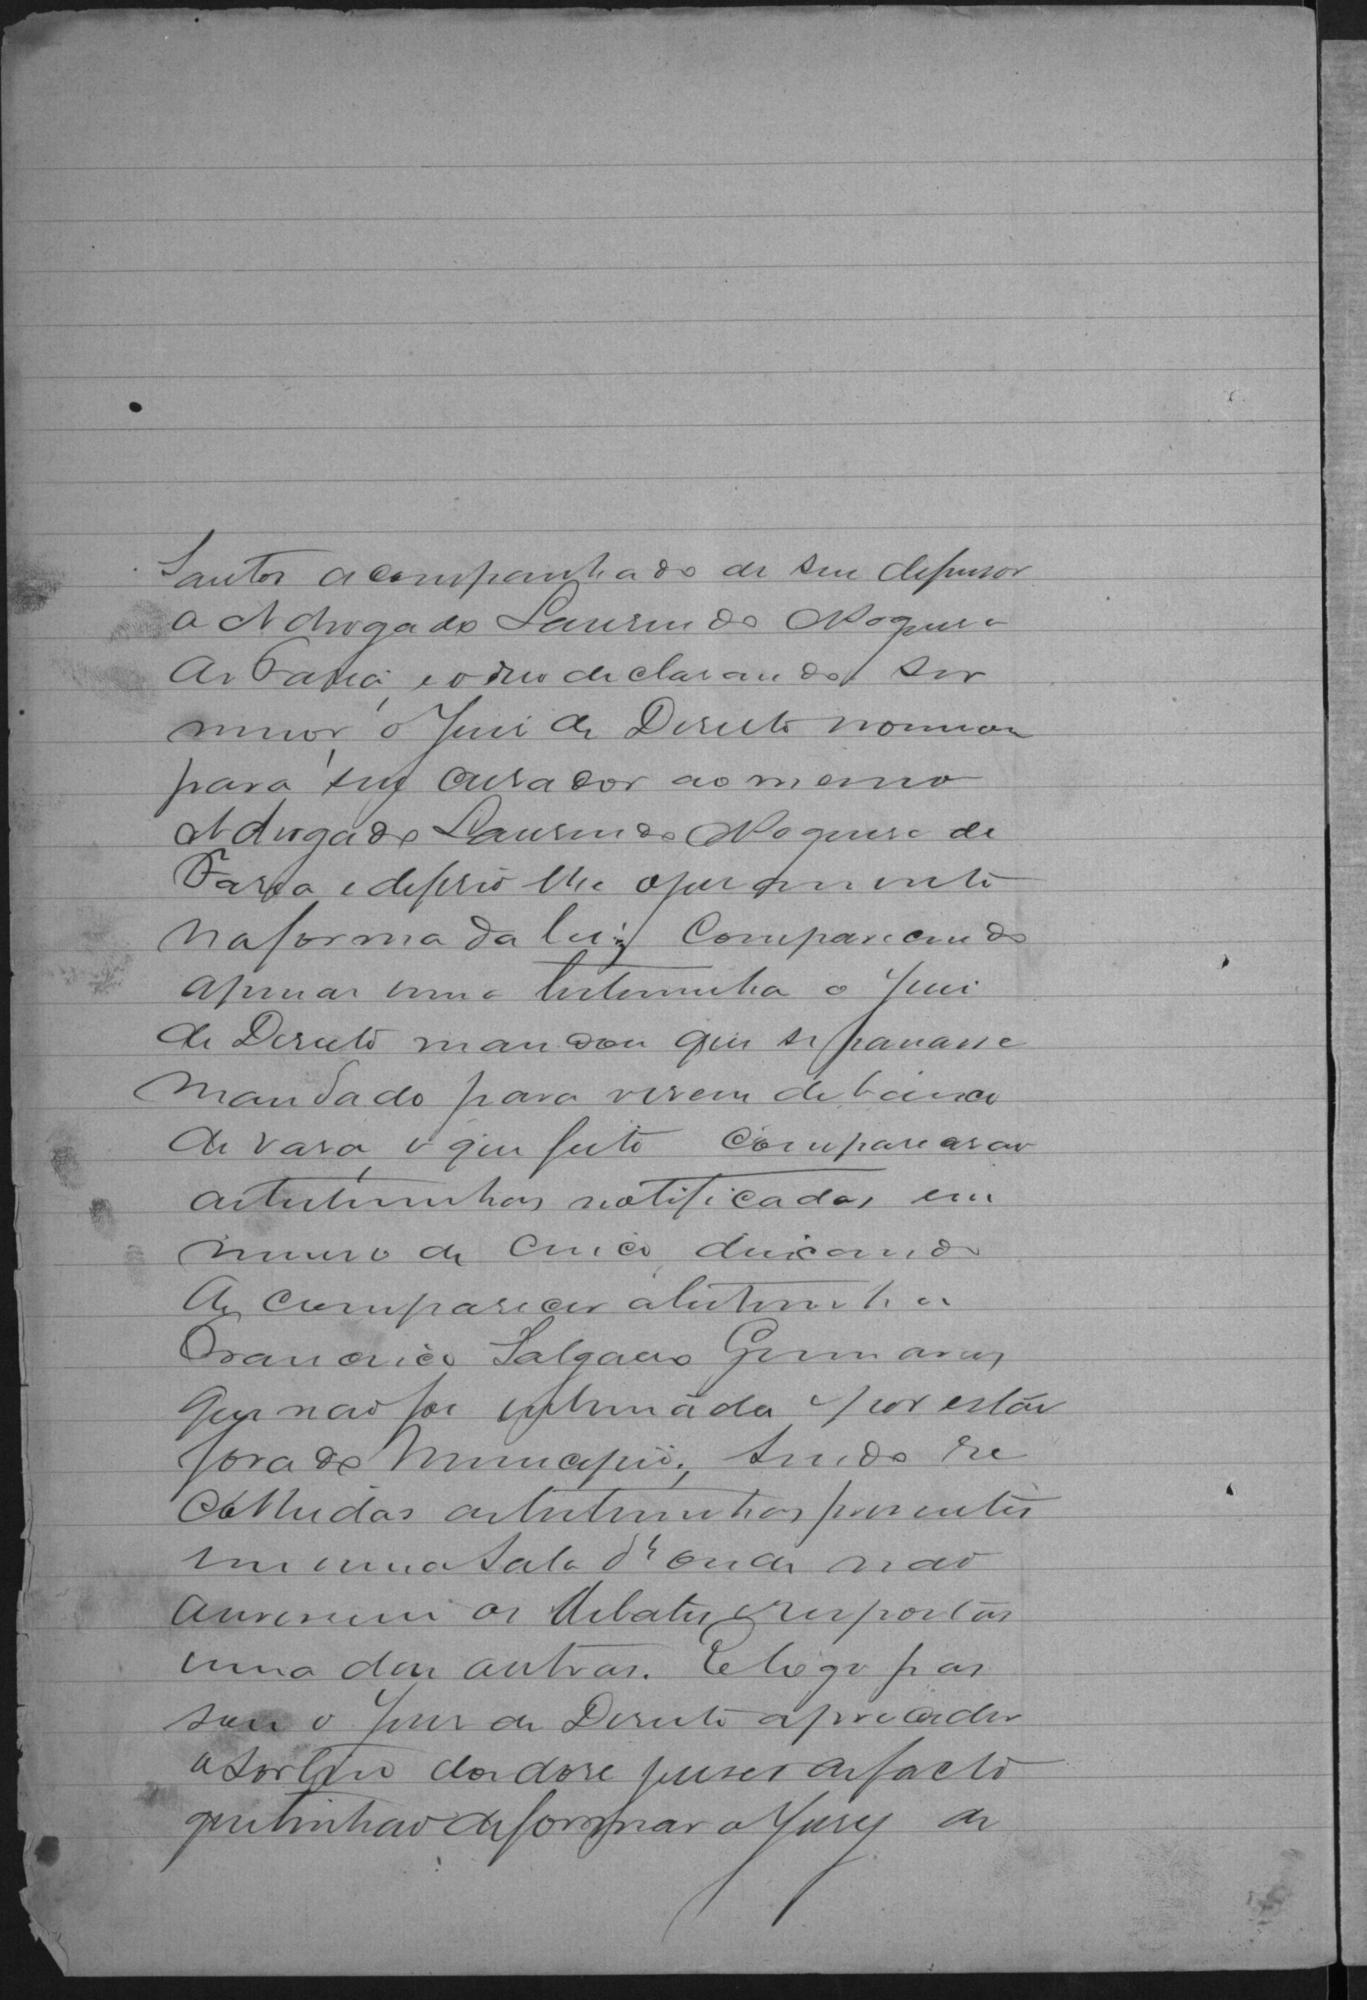 Santos acompanhado de seu defensor
o Advogado Laurindo Nogueira
de Faria, e o reu declarando ser
menor, o Juis de Direito nomeou
para seu curador ao mesmo
Advogado Laurindo Nogueira de
Faria e deferio lhe o juramento
na forma da lei; Comparecendo
apenas uma testemunha o Juis
de Direito mandou que se passasse
mandado para virem debaixo
de vara, o que feito comparecerão
as testemunhas notificadas em
numero de cinco, deixando
de comparecer a testemunha
Francisco Salgado
que não foi intimada por estar
fora do Municipio; sendo re
colhidas as testemunhas presentes
em uma sala d'onde não
ouvissem os debates e respostas
uma das outras. E logo pas
sou o Juis de Direito a proceder
o sorteio dos dose juises de facto
que tinhão de formar o Jury de